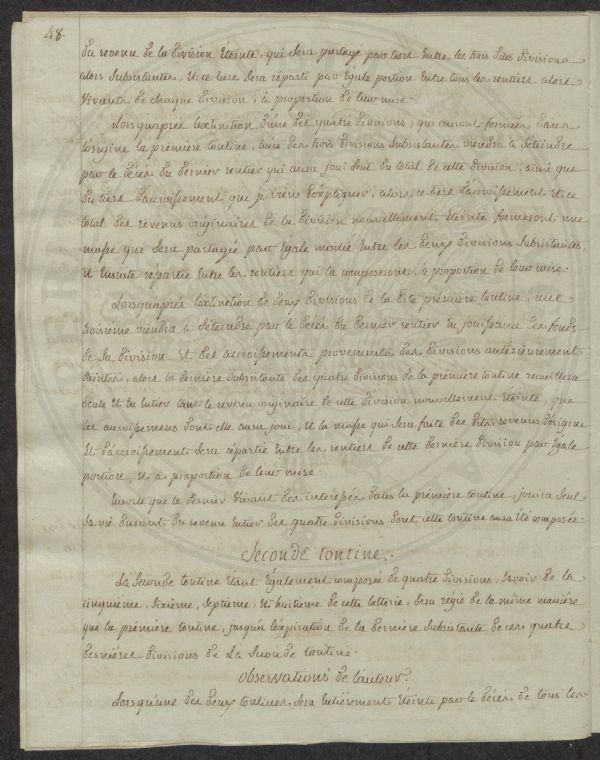 48.
du revenu de la division Éteinte, qui sera partagé par tiers Entre les trois dites divisions
alors subsistantes, Et ce tiers sera réparti par Égale portion Entre tous les rentiers alors
vivants de chaque division, à proportion de leur mise.
Lorsqu'après l'extinction d'une des quatre divisions, qui auront formées dans
l'origine la première tontine, une des trois divisions subsistantes viendra à s'éteindre
par le décès du dernier rentier qui aura joui seul du total de cette division, ainsi que
du tiers d'accroissement que je viens d'expliquer, alors ce tiers d'accroissement Et ce
total des revenus originaires de la division nouvellement éteinte formeront une
masse qui sera partagée par Egale moitié Entre les deux divisions subsistantes,
et Ensuite répartie Entre les rentiers qui la composeront, à proportion de leur mise.
Lorsqu'après l'extinction de deux divisions de la dite première tontine, une
troisième viendra à s'éteindre par le décès du dernier rentier En jouissance des fonds
de sa division Et des accroissements provenants des divisions antérieurement
éteintes, alors la dernière subsistante des quatre divisions de la première tontine recueillera
seule Et En Entier tant le revenu originaire de cette division nouvellement Éteinte, que
les accroissemens dont elle aura joui, Et la masse qui sera faite des dits revenus d'origine
Et d'accroissement sera répartie Entre les rentiers de cette dernière division par Egale
portion, et à proportion de leur mise.
Ensorte que le dernier vivant des intéressés dans la première tontine, jouira seul
sa vie durant du revenu Entier des quatre divisions dont cette tontine aura Été composée.
Seconde tontine.
La seconde tontine étant Également composée de quatre divisions, savoir de la
cinquième, sixième, septième, Et huitième de cette lotterie, sera régie de la même manière
que la première tontine, jusqu'à l'expiration de la dernière subsistante de ces quatre
dernières divisions de la seconde tontine.
Observations de l'auteur.
Lorsqu'une des deux tontines sera Entièrement Éteinte par le décès de tous les